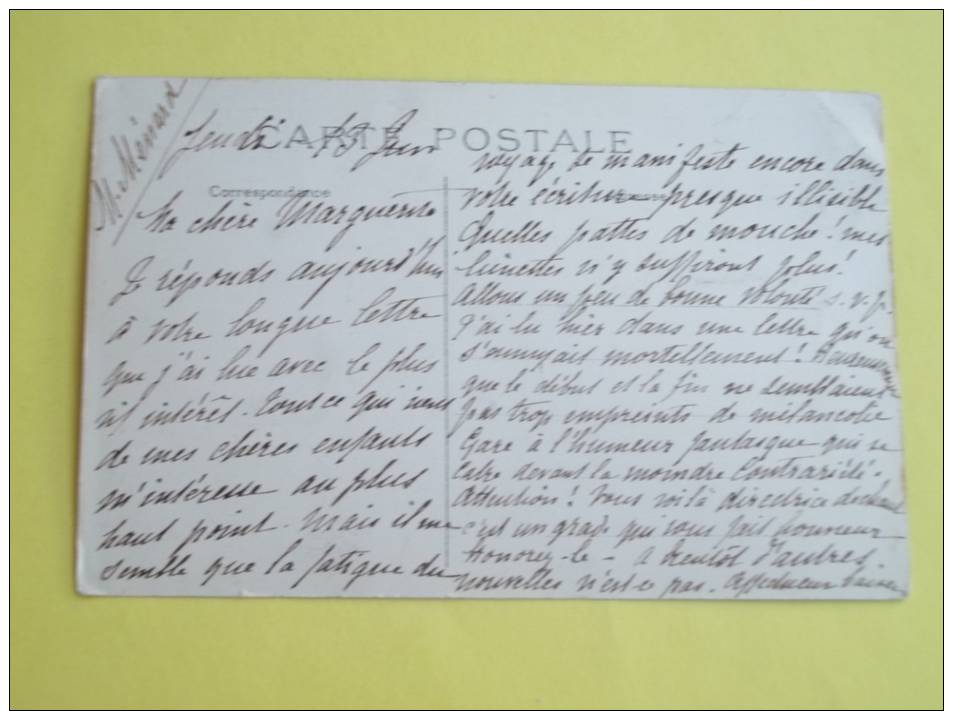 M. Ménard
CARTE POSTALE
Jeudi 13 Juin
Correspondance
Ma chère Marguerite
Je réponds aujourd'hui
à votre longue lettre
que j'ai lue avec le plus
vif intérêt. Tout ce qui vient
de mes chères enfants
m'intéresse au plus
haut point. Mais il me
semble que la fatigue du
voyage se manifeste encore dans
votre écriture presque illisible
Quelles pattes de mouche! mes
lunettes n'y suffiront plus!
Allons un peu de bonne volonté s.v.p.
J'ai lu hier dans une lettre qu'on
s'ennuyait mortellement! Heureusement
que le début et la fin ne semblaient
pas trop empreints de mélancolie
Gare à l'humeur fantasque qui se
cabre devant la moindre contrariété.
Attention! Vous voilà directrice
c'est un grade qui vous fait honneur
Honorez-le - à bientôt d'autres
nouvelles n'est-ce pas. Affectueux baisers